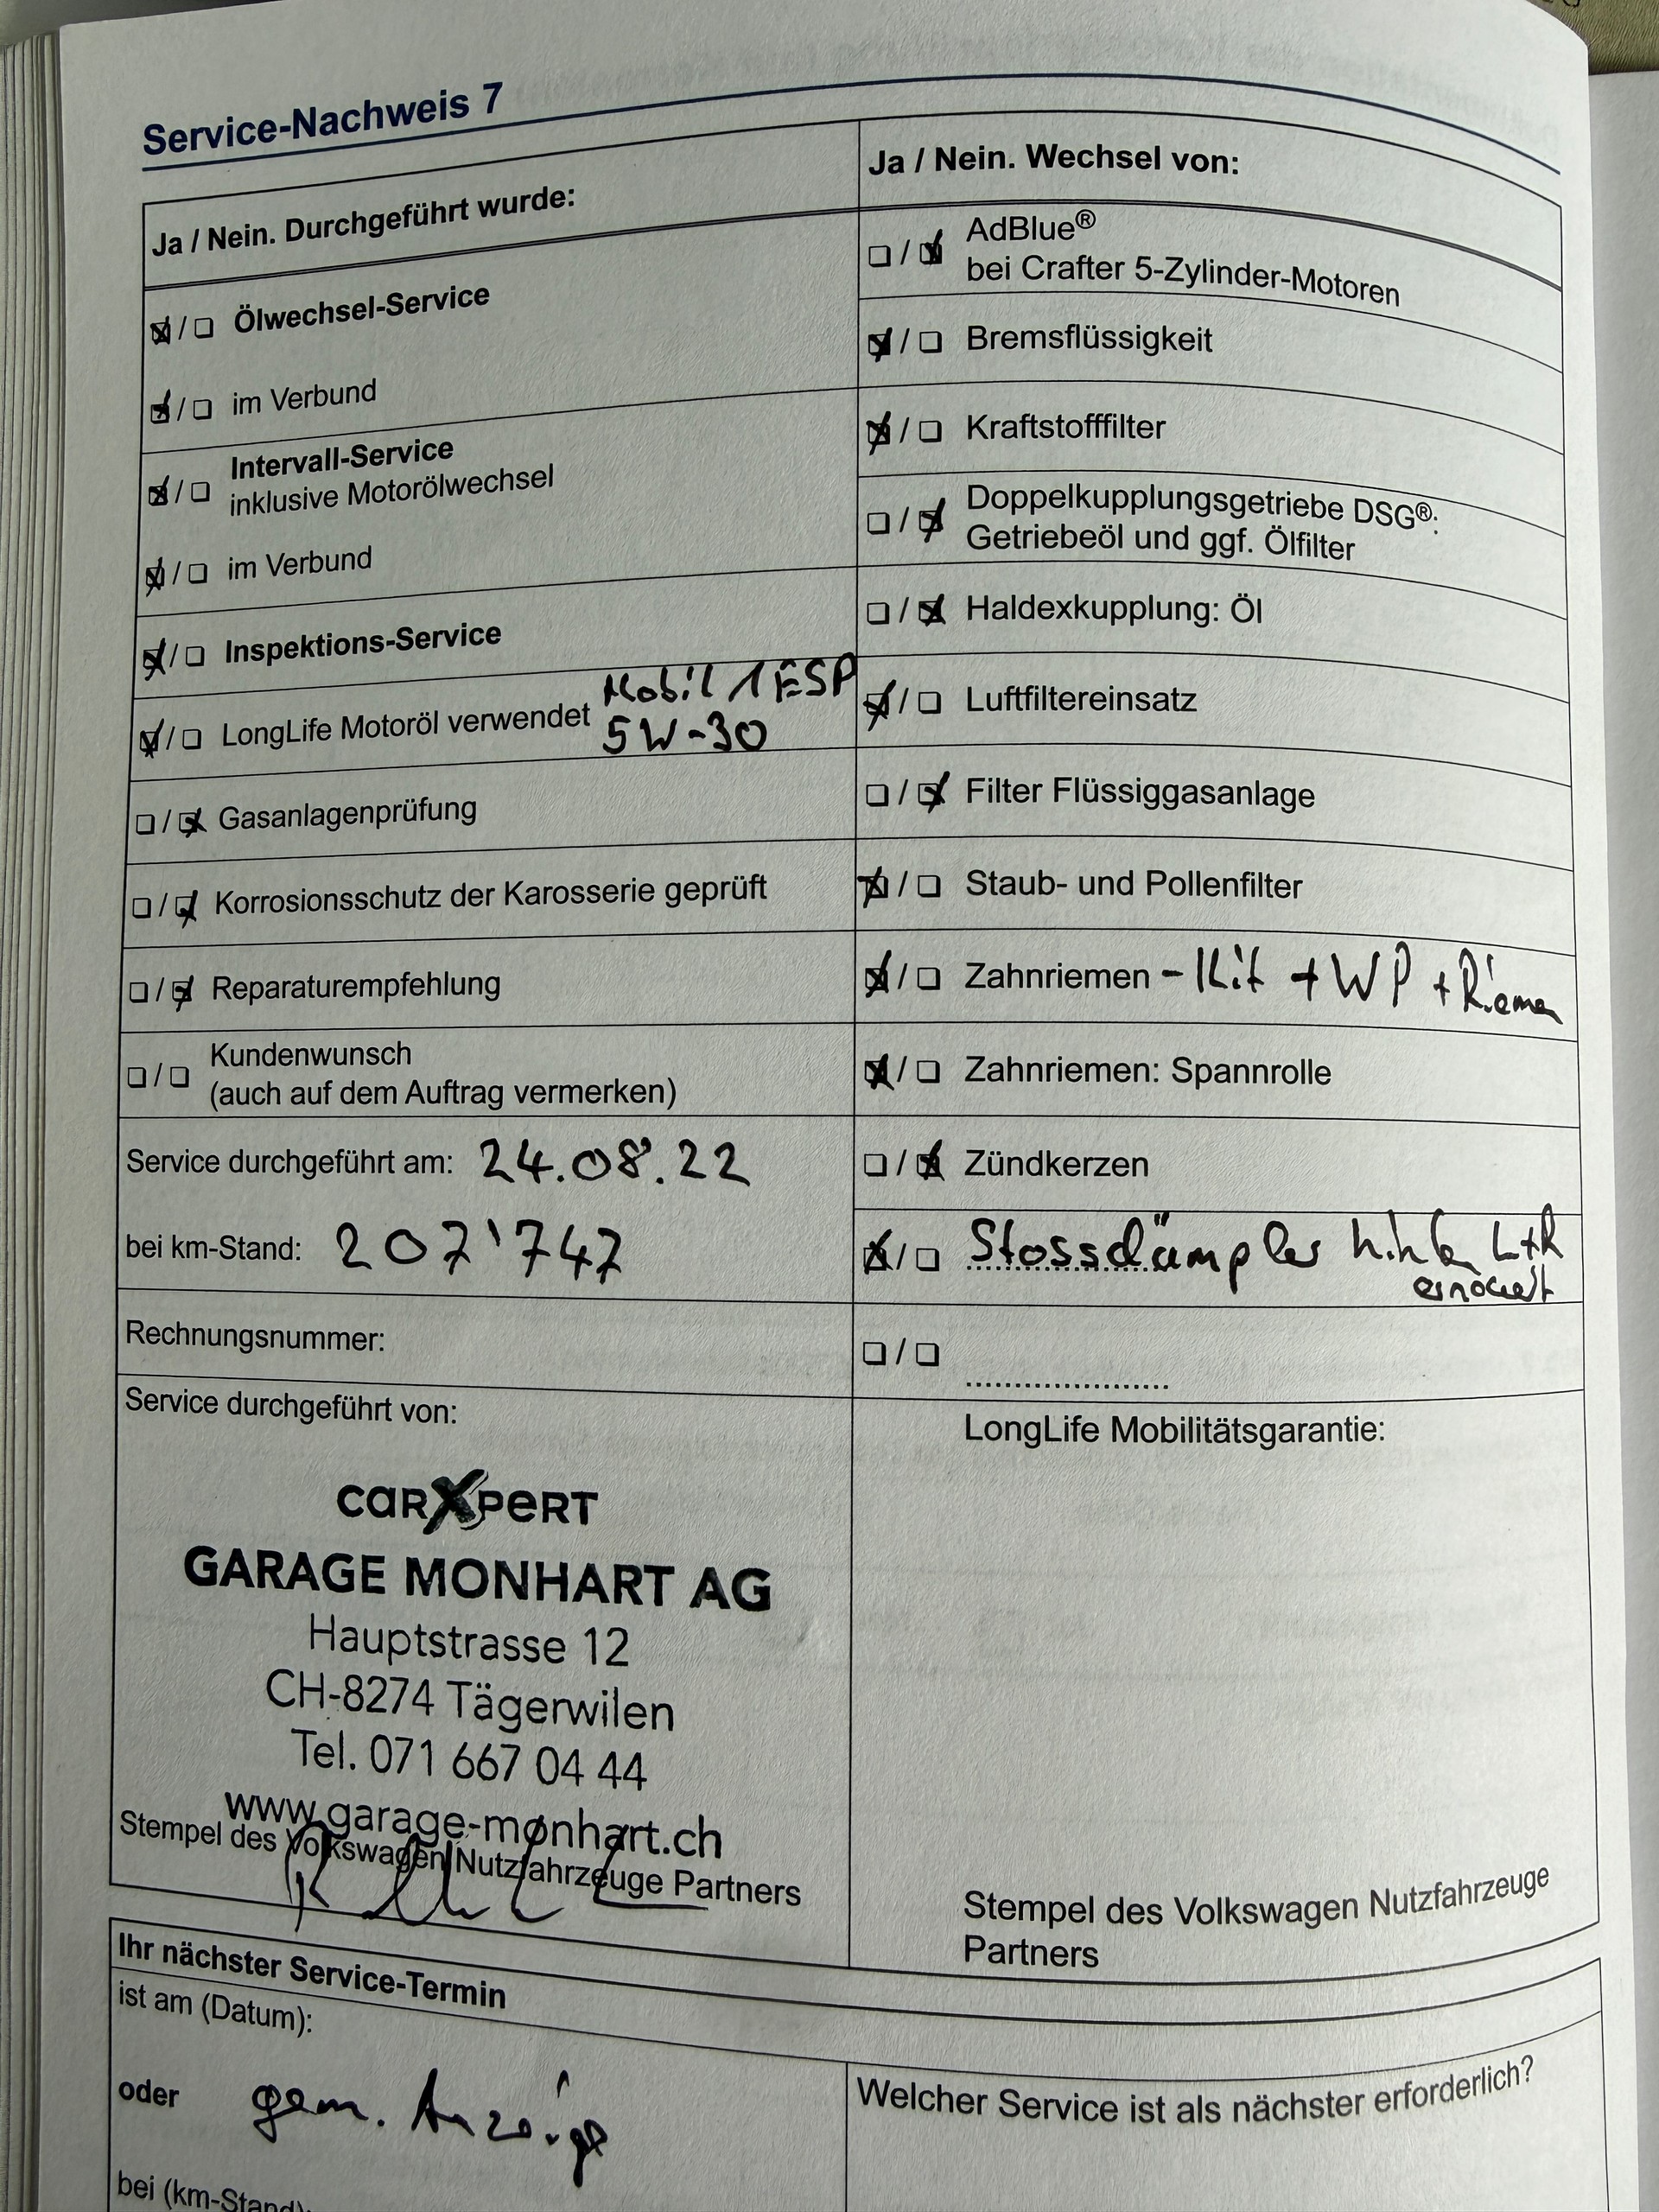 Service-Nachweis 7
Ja / Nein. Durchgeführt wurde:
Ölwechsel-Service
im Verbund
Intervall-Service
inklusive Motorölwechsel
im Verbund
Inspektions-Service
LongLife Motoröl verwendet Mobil 1 ESP
5W-30
Gasanlagenprüfung
Korrosionsschutz der Karosserie geprüft
Reparaturempfehlung
Kundenwunsch
(auch auf dem Auftrag vermerken)
Service durchgeführt am: 24.08.22
bei km-Stand: 207'747
Rechnungsnummer:
Service durchgeführt von:
carXpert
GARAGE MONHART AG
Hauptstrasse 12
CH-8274 Tägerwilen
Tel. 071 667 04 44
www.garage-monhart.ch
Stempel des Volkswagen Nutzfahrzeuge Partners
Ja / Nein. Wechsel von:
AdBlue®
bei Crafter 5-Zylinder-Motoren
Bremsflüssigkeit
Kraftstofffilter
Doppelkupplungsgetriebe DSG®:
Getriebeöl und ggf. Ölfilter
Haldexkupplung: Öl
Luftfiltereinsatz
Filter Flüssiggasanlage
Staub- und Pollenfilter
Zahnriemen - Kit + WP + Riemen
Zahnriemen: Spannrolle
Zündkerzen
Stossdämpfer hinten L+R
erneuert
LongLife Mobilitätsgarantie:
Stempel des Volkswagen Nutzfahrzeuge
Partners
Ihr nächster Service-Termin
ist am (Datum):
oder gem. Anzeige
bei (km-Stand):
Welcher Service ist als nächster erforderlich?